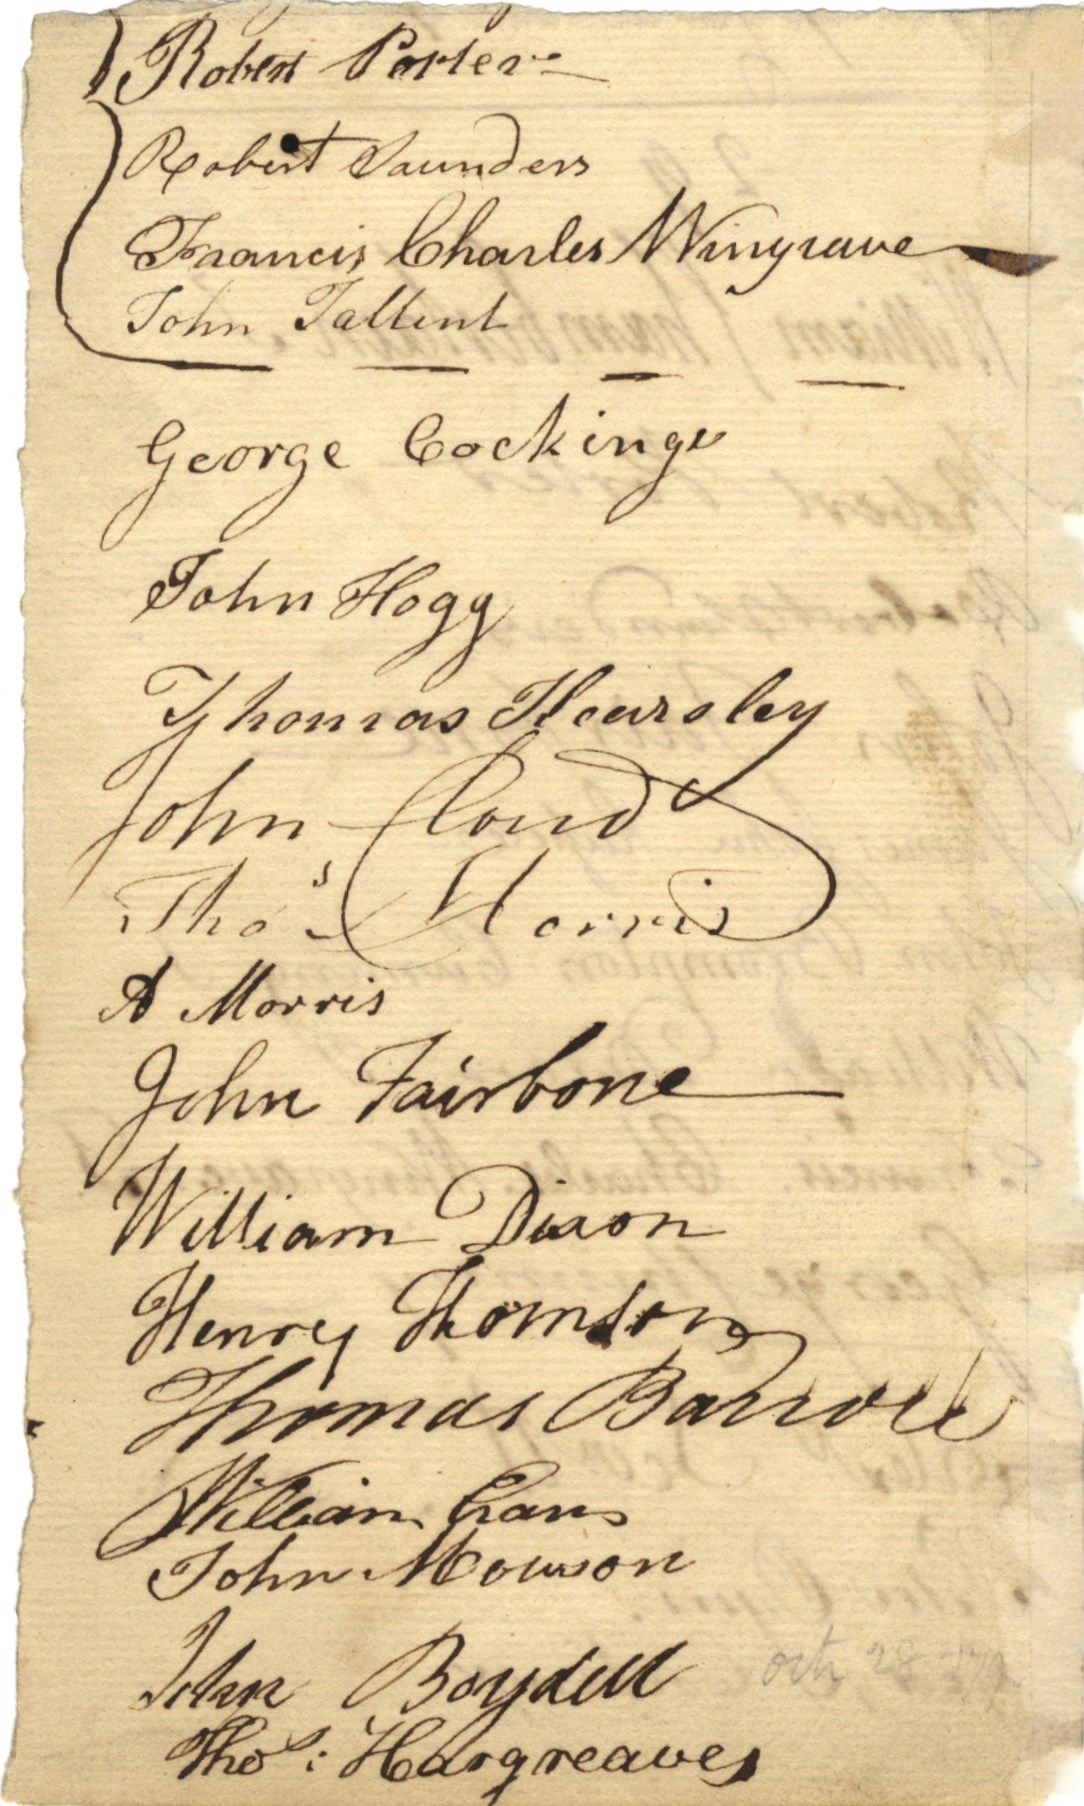 Robert Porter
Robert Saunders
Francis Charles Wingrave
John Tallent
George Cockings
John Hogg
Thomas Hearsley
John Cloud
Thos Morris
A Morris
John Fairbone
William Dixon
Henry Thomson
Thomas Barrow
William Evans
John Mowson
John Boydell
Oct 28 179
Thos: Hargreaves